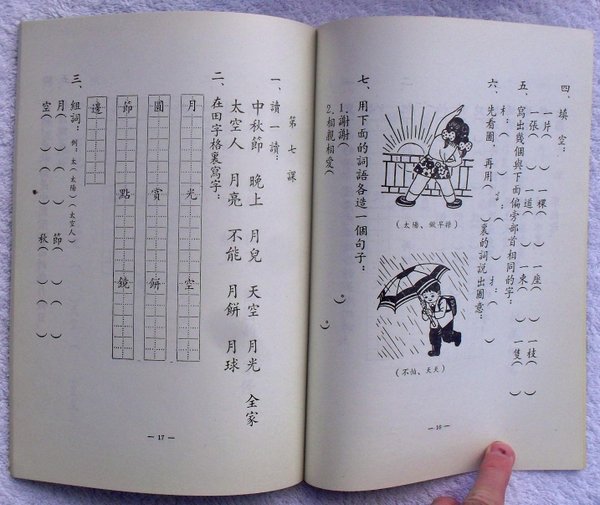 四、填空：
一片（ ）一棵（ ）一座（ ）一枝（ ）
一張（ ）一道（ ）一束（ ）一隻（ ）
五、寫出幾個與下面偏旁部首相同的字：
六、先看圖，再用（ ）裏的詞說出圖意：
（太陽、做早操）
（不怕、天天）
七、用下面的詞語各造一個句子：
1.謝謝（ ）
2.相親相愛（ ）
— 16 —
第七課
一、讀一讀：
中秋節 晚上 月兒 天空 月光 全家
太空人 月亮 不能 月餅 月球
二、在田字格裏寫字：
月 光 空
圓 賞 餅
節 點 鏡
邊
三、組詞：例：太（太陽）（太空人）
月（ ）（ ） 節（ ）（ ）
空（ ）（ ） 秋（ ）（ ）
— 17 —